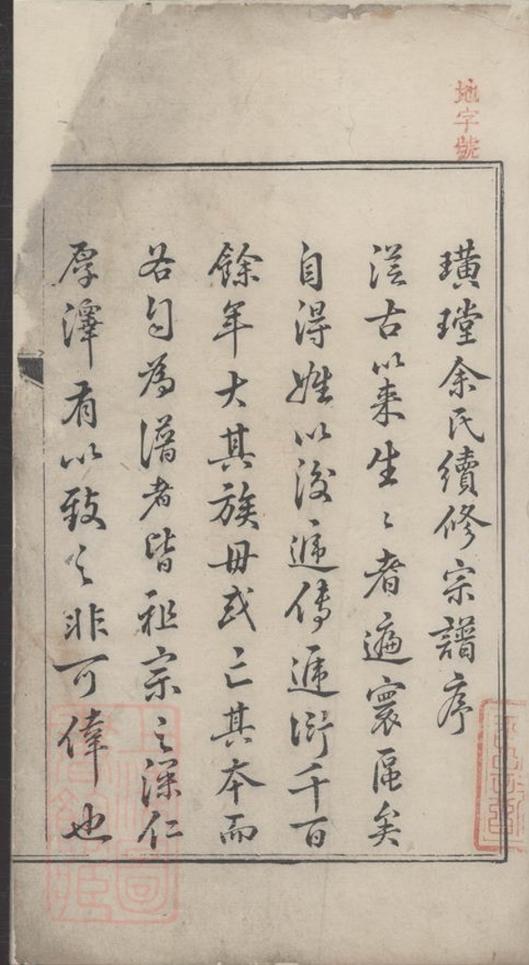 地字號
璜瑝余氏續修宗譜序
從古以来生〻者遍寰區矣
自得姓以後遞傳遞衍千百
餘年大其族毋或亡其本而
各自為譜者皆祖宗之深仁
厚澤有以致之非可倖也